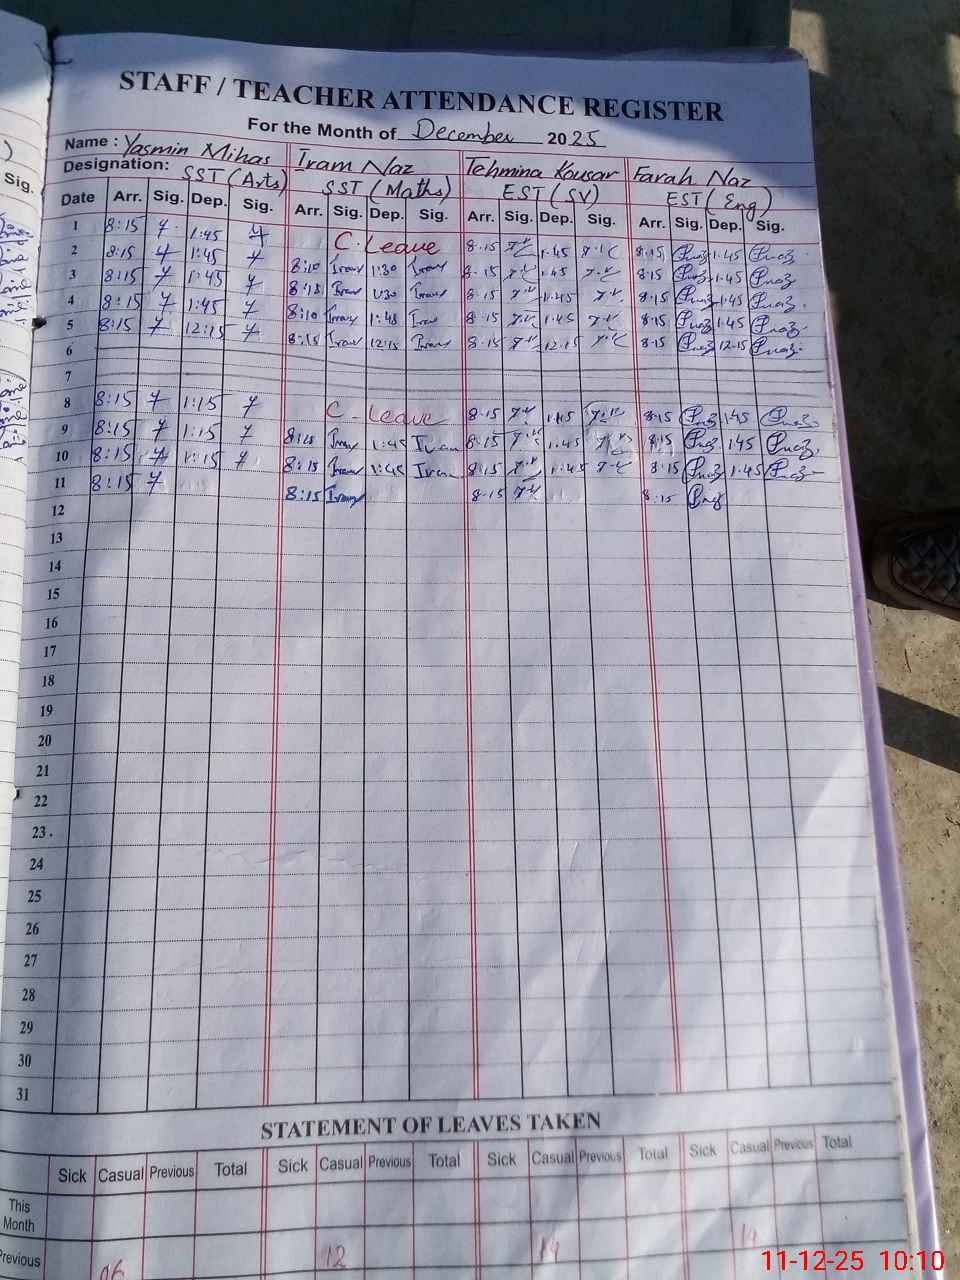 STAFF / TEACHER ATTENDANCE REGISTER
For the Month of December 2025
Name : Yasmin Mihas Iram Naz Tehmina Kousar Farah Naz
Designation: SST (Arts) SST (Maths) EST (SV) EST (Eng)
Sig.
Date Arr. Sig. Dep. Sig. Arr. Sig. Dep. Sig. Arr. Sig. Dep. Sig. Arr. Sig. Dep. Sig.
1 8:15 1:45 C. Leave 8.15 1.45 8:15 1.45
2 8:15 1:45 8:10 Iram 1:30 Iram 8.15 1.45 8:15 1.45
3 8:15 1:45 8:15 Iram 1:30 Iram 8.15 1.45 8:15 1.45
4 8:15 1:45 8:10 Iram 1:45 Iram 8.15 1.45 8:15 1.45
5 8:15 12:15 8:15 Iram 12:15 Iram 8.15 12.15 8.15 12.15
6
7
8 8:15 1:15 C. Leave 8.15 1.45 8.15 1.45
9 8:15 1:15 Iram 1:45 Iram 8.15 1.45 8.15 1.45
10 8:15 1:15 8:15 Iram 1:45 Iram 8.15 1.45 8.15 1.45
11 8:15 8:15 Iram 8.15 8.15
12
13
14
15
16
17
18
19
20
21
22
23
24
25
26
27
28
29
30
31
STATEMENT OF LEAVES TAKEN
Sick Casual Previous Total Sick Casual Previous Total Sick Casual Previous Total Sick Casual Previous Total
This
Month
Previous 06 12 14 14
11-12-25 10:10